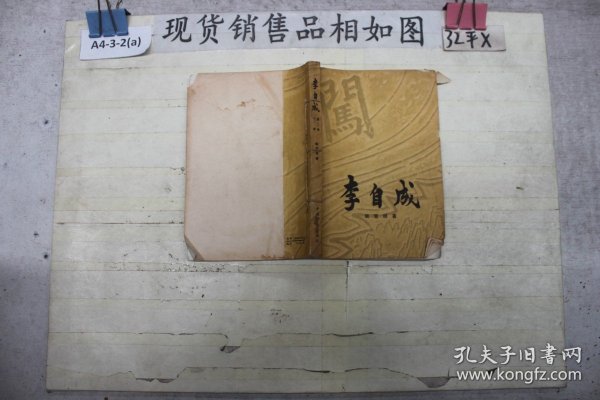 A4-3-2(a)
现货销售品相如图
32平X
李自成
闖
李自成
姚雪垠著
孔夫子旧书网
www.kongfz.com